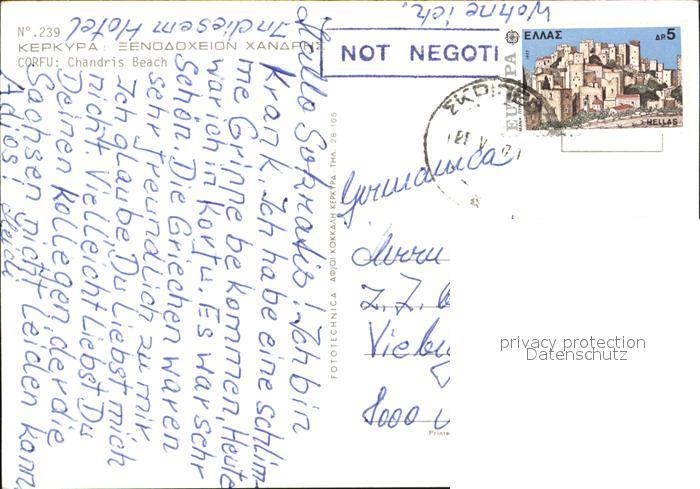 N°.239
ΚΕΡΚΥΡΑ: ΞΕΝΟΔΟΧΕΙΟΝ ΧΑΝΔΡΗΣ
CORFU: Chandris Beach
In diesem Hotel
Wohne ich.
NOT NEGOTI
Hallo Sokratis! Ich bin
Krank. Ich habe eine schlim-
me Grippe bekommen. Heute
war ich in Korfu. Es war sehr
Schön. Die Griechen waren
sehr freundlich zu mir
Ich glaube Du liebst mich
nicht. Vielleicht liebst Du
Deinen Kollegen, der die
Sachsen nicht leiden kann.
Adios! Heidi
FOTOTECHNICA ΑΦΙΟΙ ΚΟΚΚΑΛΗ ΚΕΡΚΥΡΑ ΤΗΛ. 28.105
EUROPA
ΕΛΛΑΣ
ΔΡ. 5
HELLAS
Germanica
Herrn
z. Z.
8000
Printe
privacy protection
Datenschutz